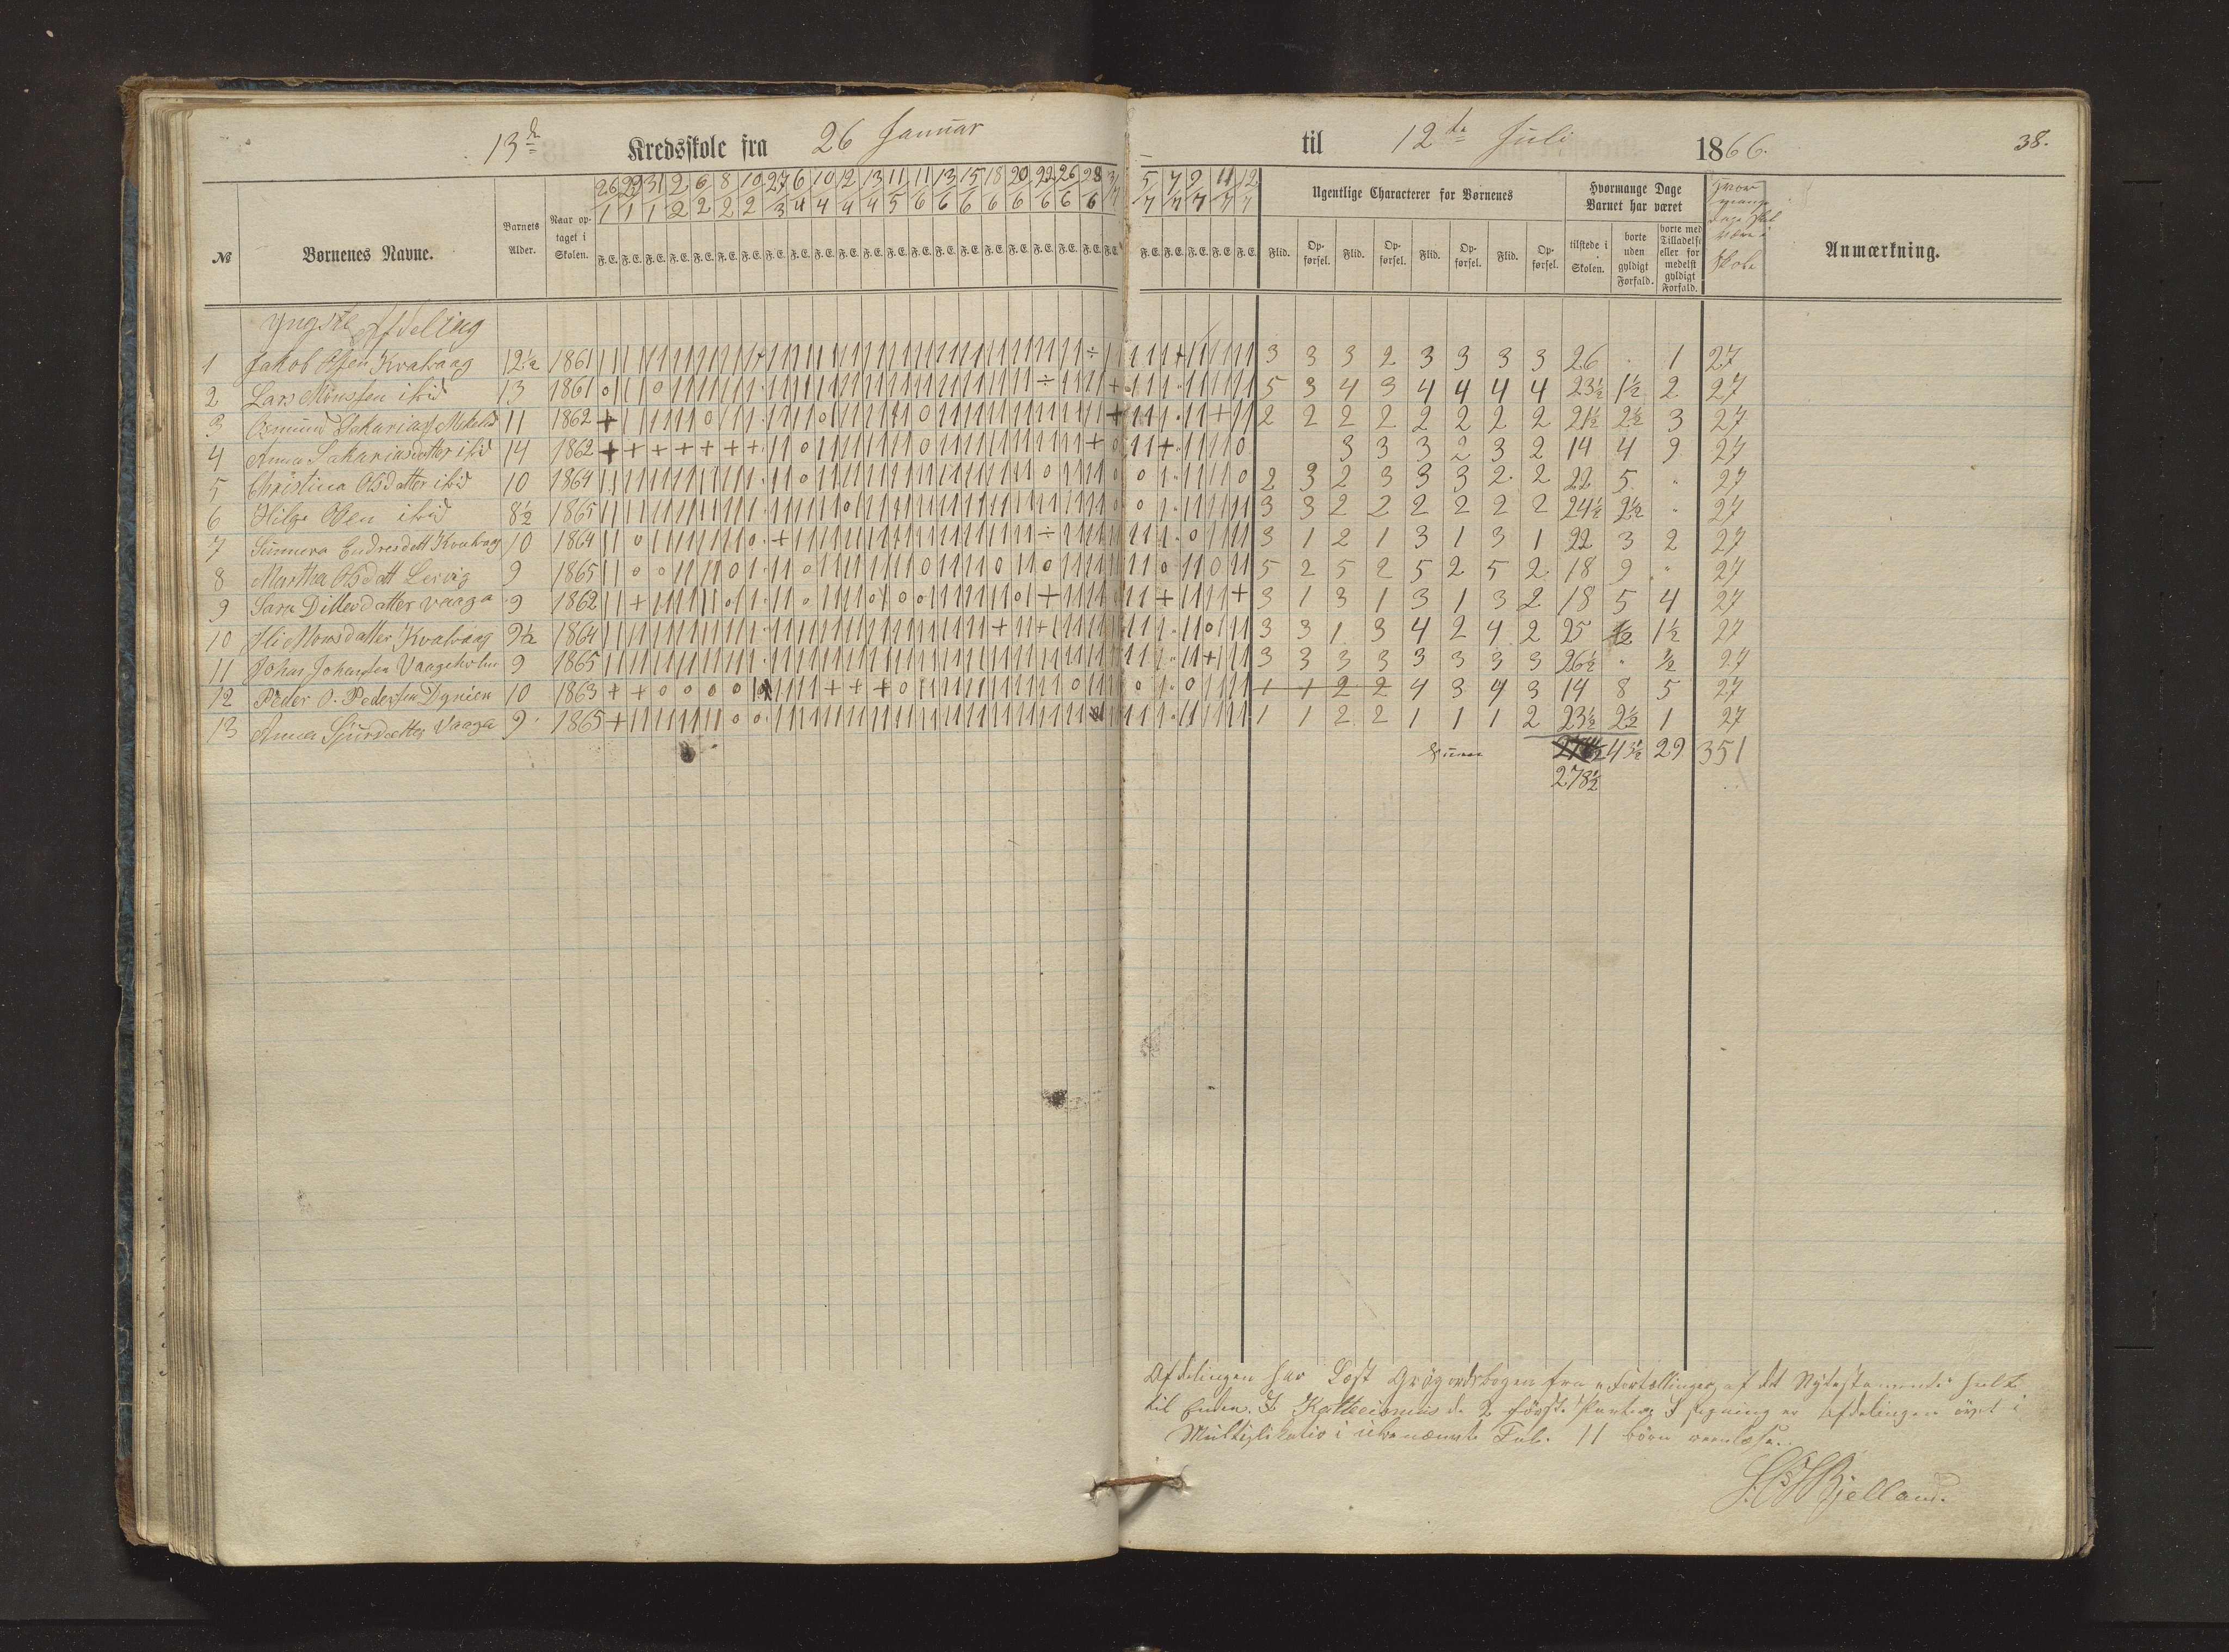 13de Kredsskole fra 26 Januar til 12te Juli 1866. 38.
№ Børnenes Navne. Barnets Alder. Naar optaget i Skolen. 26/1 29/1 31/1 2/2 6/2 8/2 10/2 27/3 6/4 10/4 12/4 13/4 11/5 11/6 13/6 15/6 18/6 20/6 22/6 26/6 28/6 3/7 5/7 7/7 9/7 11/7 12/7
F. E. Ugentlige Characterer for Børnenes Flid. Opførsel. Flid. Opførsel. Flid. Opførsel. Flid. Opførsel.
Hvormange Dage Barnet har været tilstede i Skolen. borte uden gyldigt Forfald. borte med Tilladelse eller formedelst gyldigt Forfald.
Hvor mange Dage Skole Anmærkning.
Yngste Afdeling
1 Jakob Olsen Kvalvaag 12½ 1861 3 3 3 2 3 3 3 3 26 . 1 27
2 Lars Monssen ibid 13 1861 5 3 4 3 4 4 4 4 23½ 1½ 2 27
3 Osmund Sakarias 11 1862 2 2 2 2 2 2 2 2 21½ 2½ 3 27
4 Anna Sakariasdatter ibid 14 1862 3 3 3 2 3 2 14 4 9 27
5 Christina Olsdatter ibid 10 1864 2 3 2 3 3 3 2 2 22 5 " 27
6 Helge Olsen ibid 8½ 1865 3 3 2 2 2 2 2 2 24½ 2½ " 27
7 Sunnera Endresdatt Kvalvaag 10 1864 3 1 2 1 3 1 3 1 22 3 2 27
8 Martha Olsdatt Lervig 9 1865 5 2 5 2 5 2 5 2 18 9 " 27
9 Sara Ditlevdatter Vaaga 9 1862 3 1 3 1 3 1 3 2 18 5 4 27
10 Monsdatter Kvalvaag 9½ 1864 3 3 1 3 4 2 4 2 25 ½ 1½ 27
11 Johan Johansen Vaageholm 9 1865 3 3 3 3 3 3 3 3 26½ " ½ 27
12 Peder O. Pedersen 10 1863 1 1 2 2 4 3 4 3 14 8 5 27
13 Anna Sjursdatter Vaaga 9 1865 1 1 2 2 1 1 1 2 23½ 2½ 1 27
Summa 43½ 29 351
278½
Afdelingen har Læst fra "Fortællinger af det Nytestamente
til Enden. I Kattecismus de 2 første Parter. I Regning er Afdelingen øvet i
Multiplikatio i ubenævnte Tal. 11 børn
Bjelland.